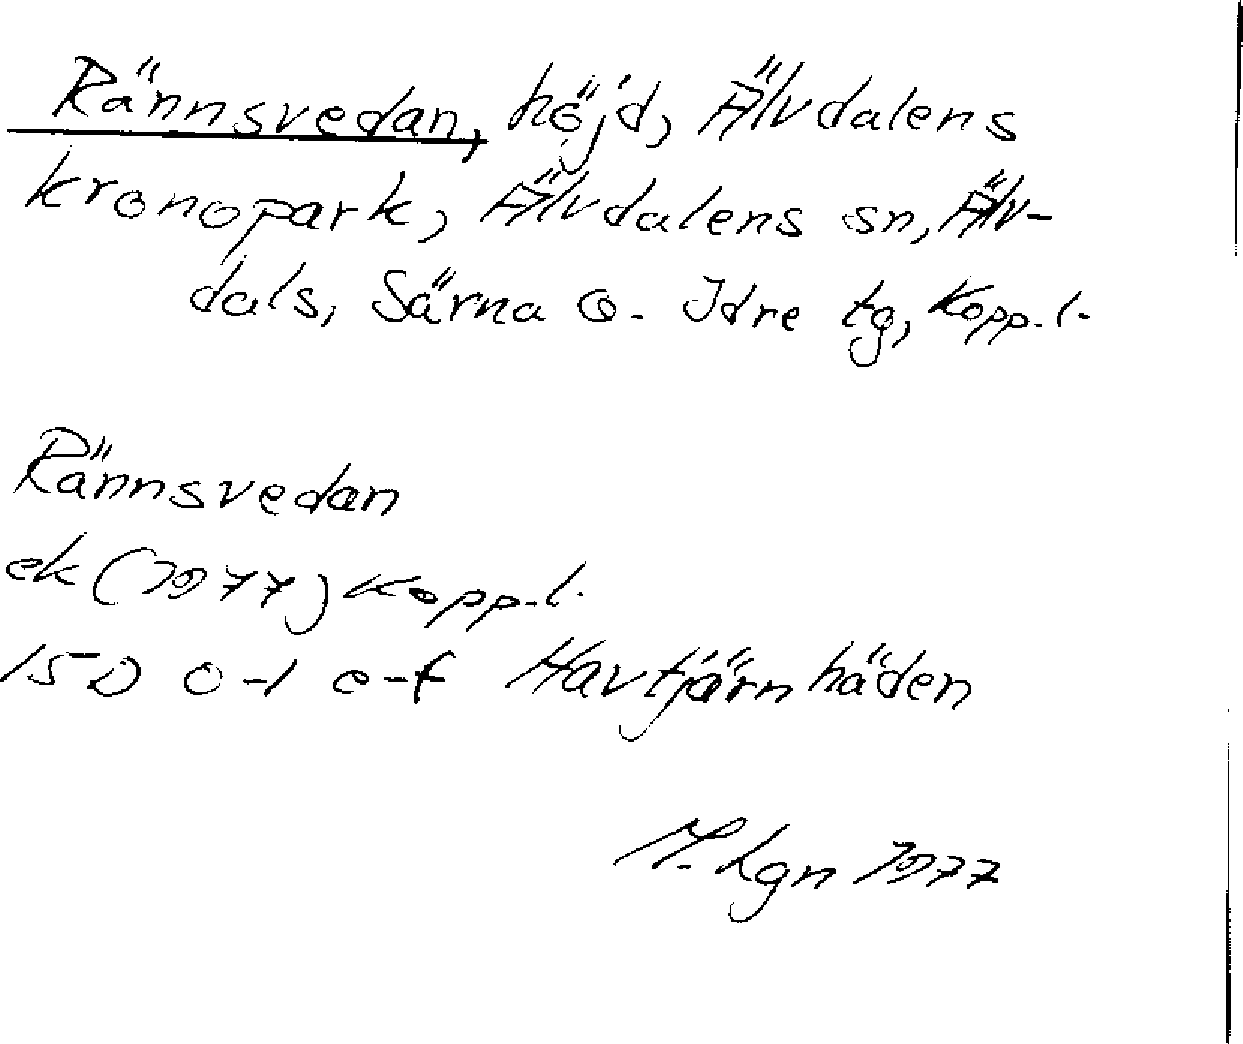 Rännsvedan, höjd, Älvdalens
kronopark, Älvdalens sn, Älv-
dals, Särna o. Idre tg, Kopp. l.
Rännsvedan
ek (1977) Kopp. l.
15D 0-1 e-f Havtjärnhäden
M. Lgn 1977